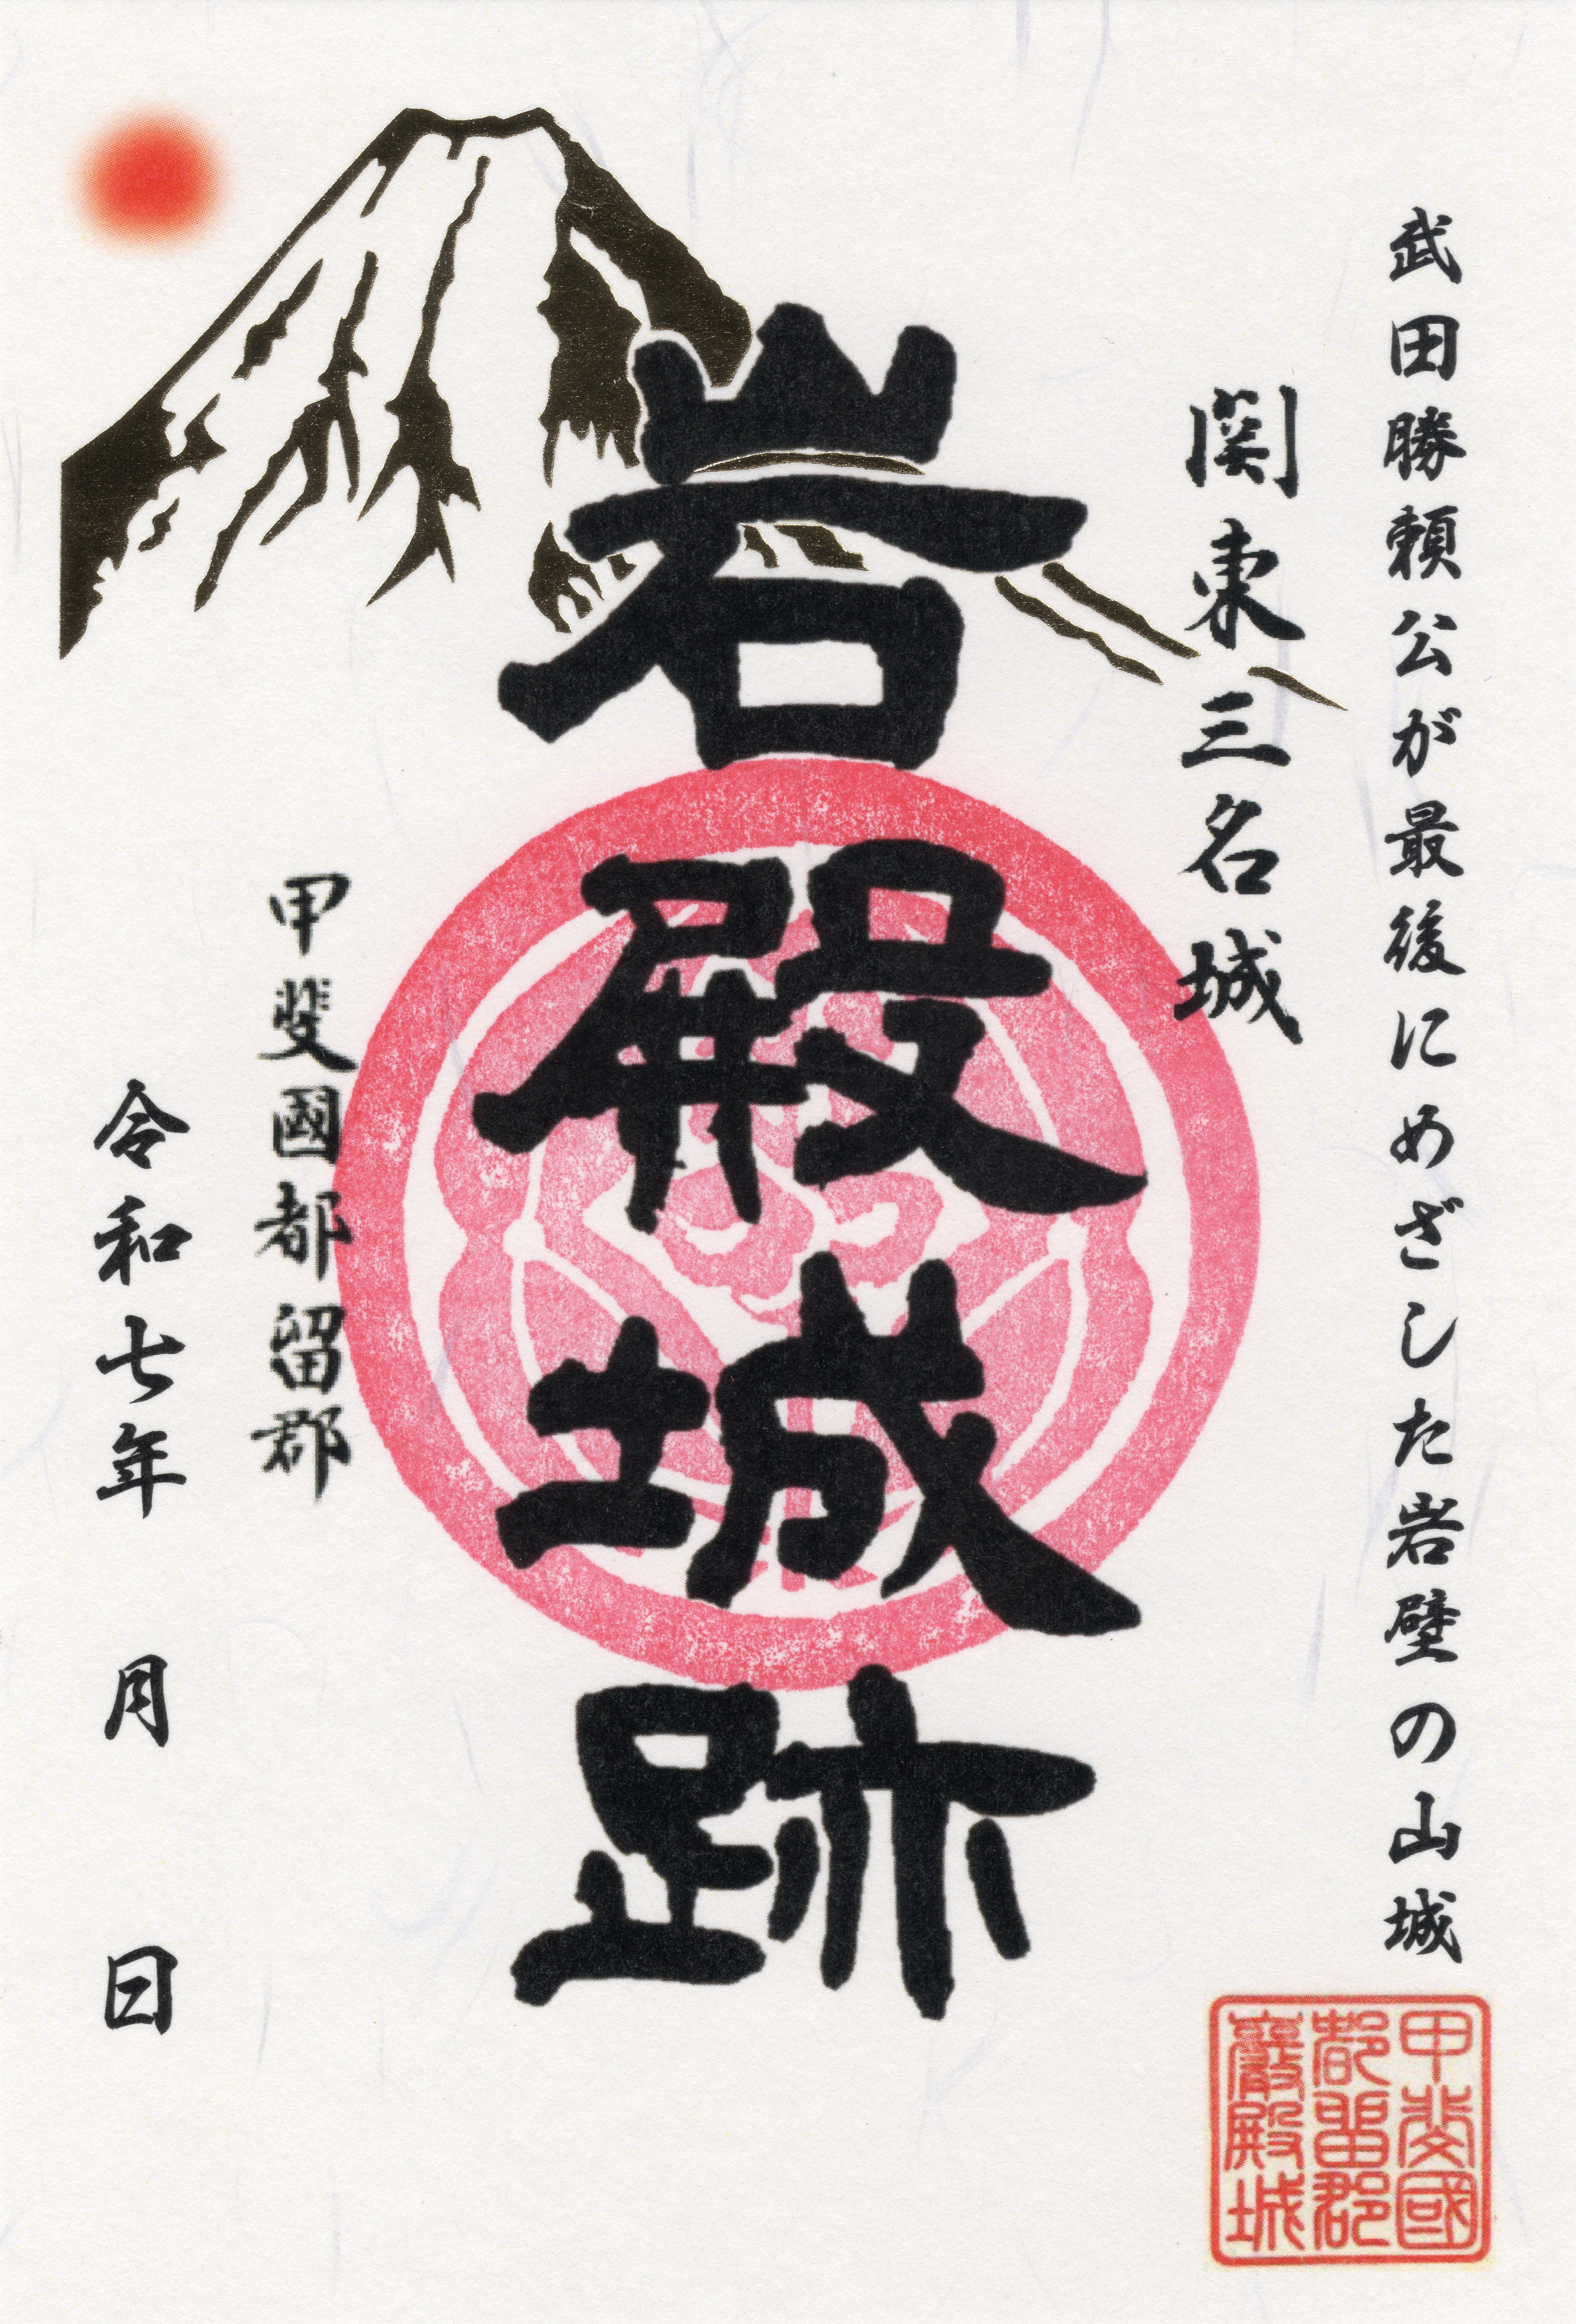 武田勝頼公が最後にめざした岩壁の山城
関東三名城
岩殿城跡
甲斐國都留郡
令和七年 月 日
甲斐國
都留郡
巖殿城